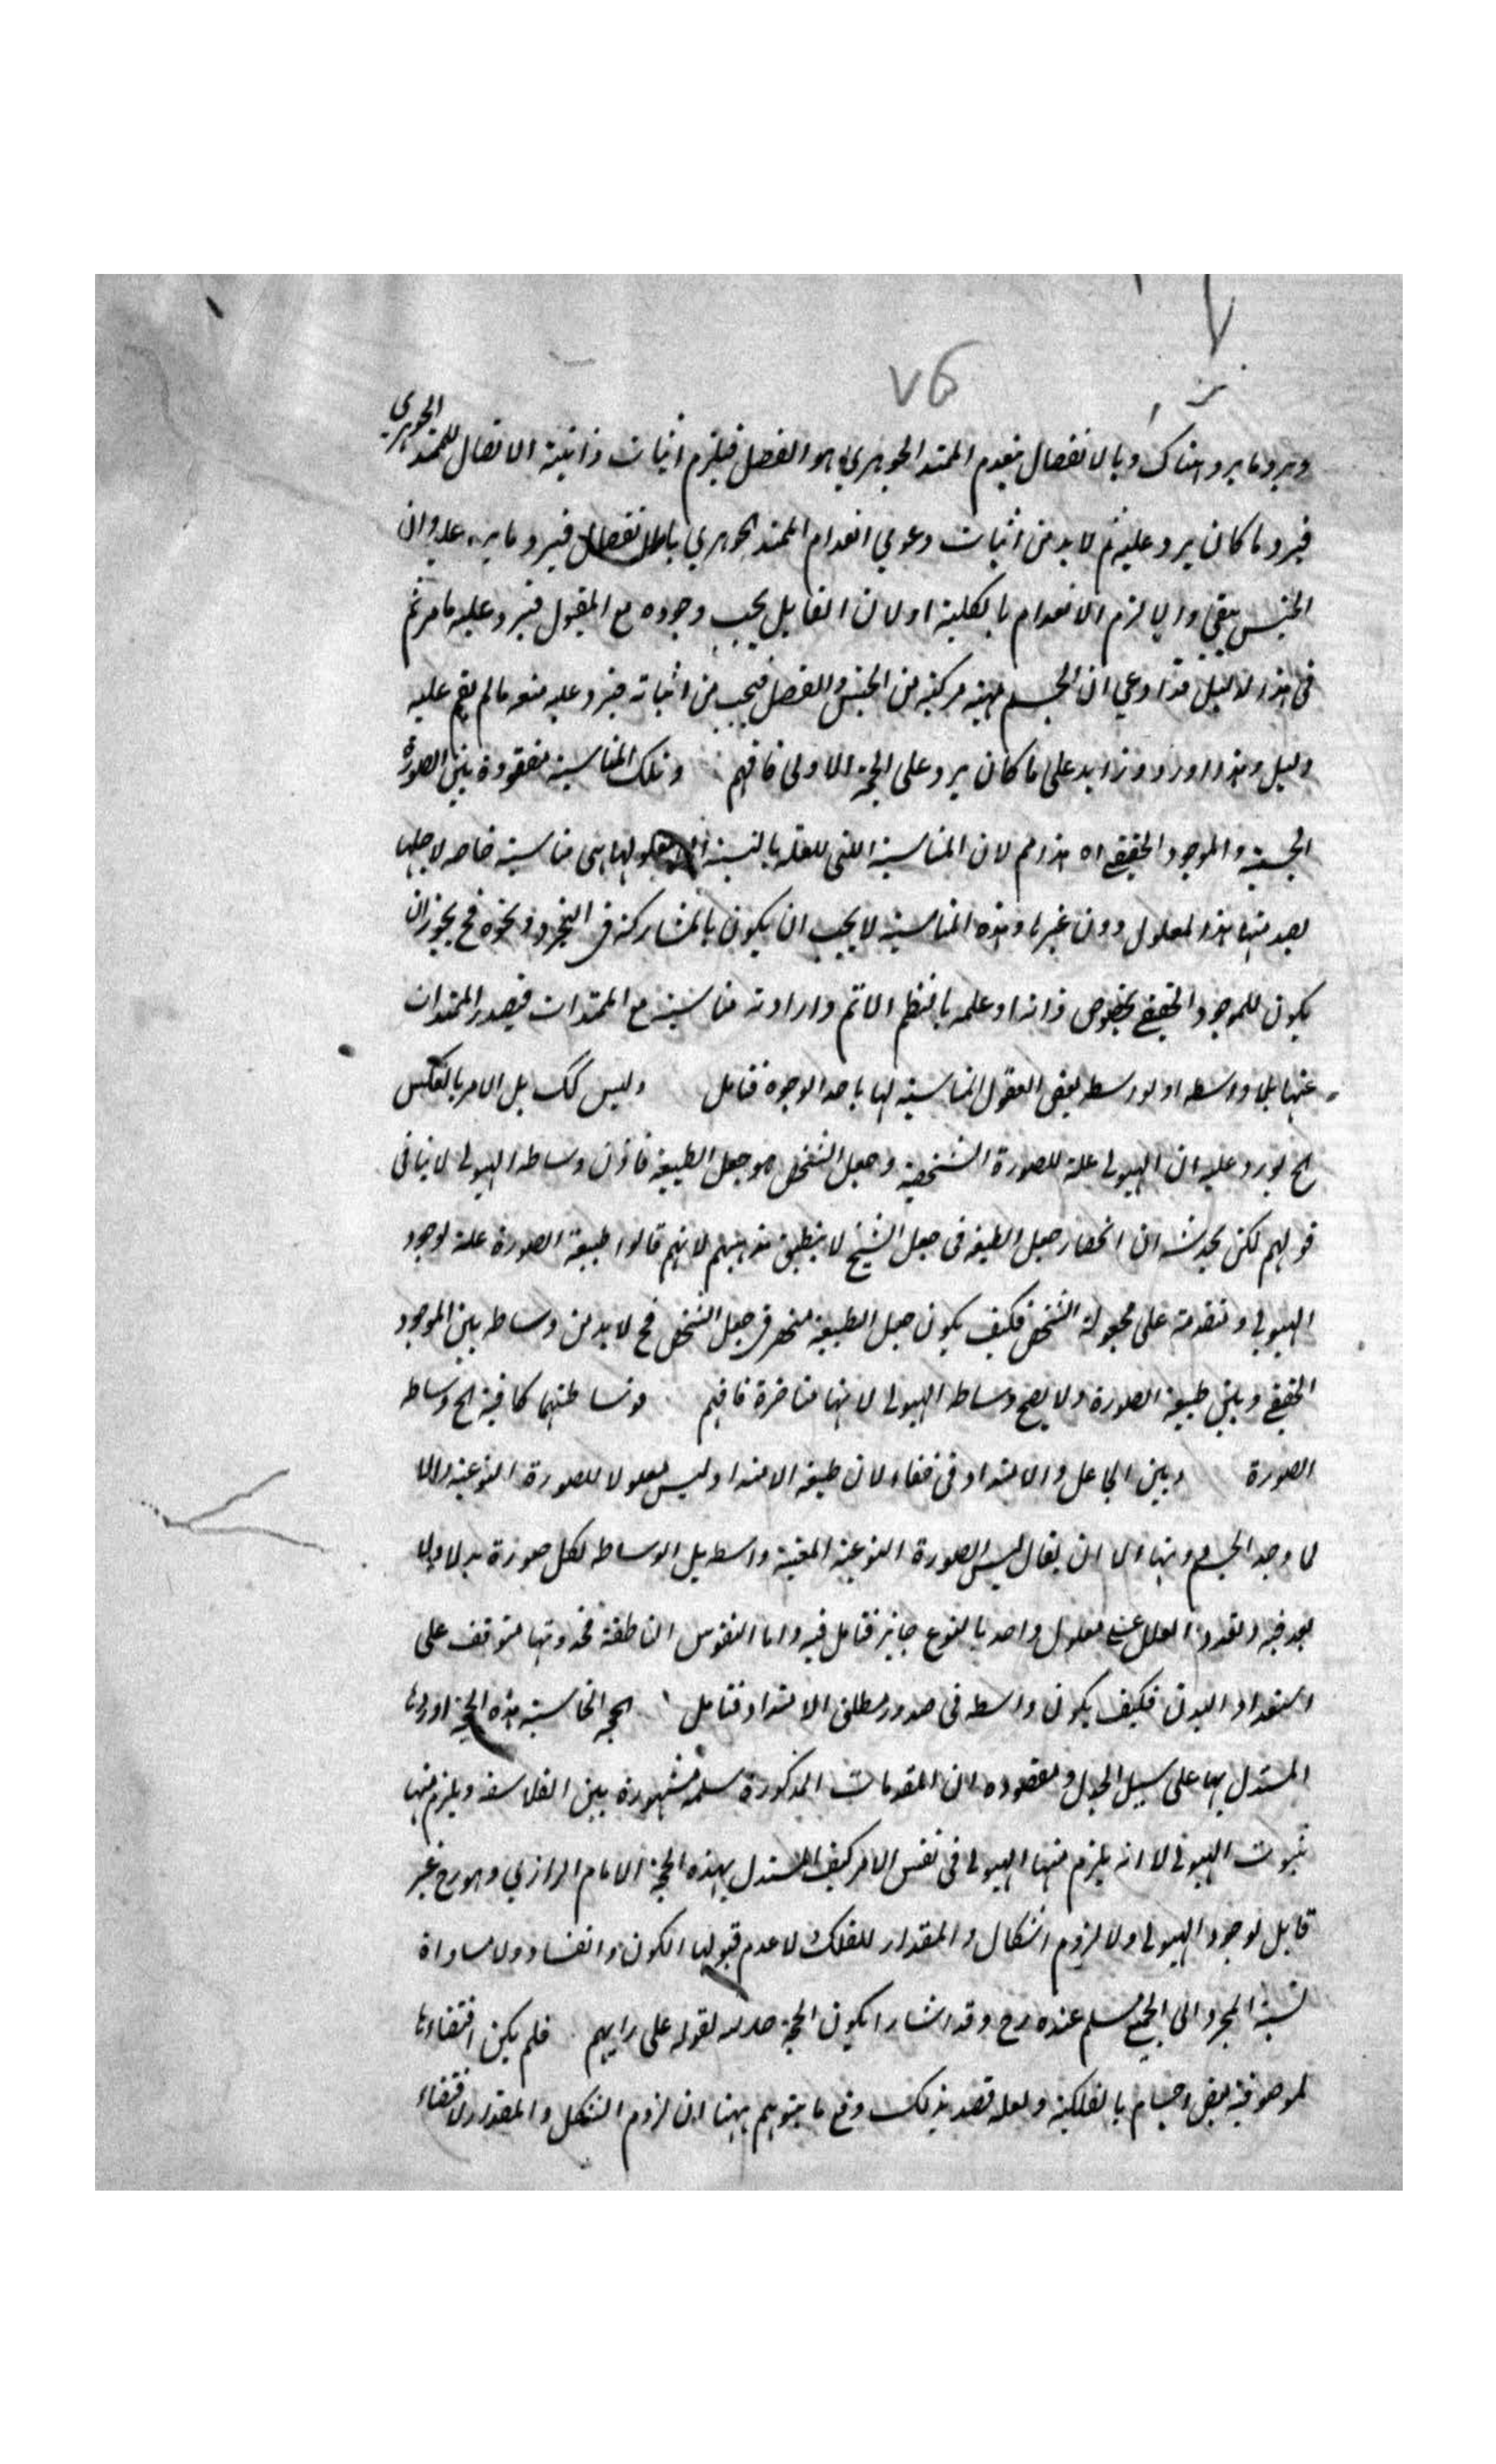 ٧٦
ويرد ما يرد هناك وبالانفصال ينعدم الممتد الجوهري هو الفصل فيلزم اثبات ذاتية الاتصال للممتد الجوهري
فيرد ما كان يرد عليه ثم لا بد من اثبات دعوي انعدام الممتد الجوهري بالانفصال فيرد ما يرد عليه وان
الجنس يبقي والا لزم الانعدام بالكلية اولان القابل يجب وجوده مع المقبول فيرد عليه ما مر ثم
في هذا الدليل قد ادعي ان الجسم مهية مركبة من الجنس والفصل فيجب من اثباته فيرد عليه منعه مالم يقم عليه
دليل وهذا اورد وزايد على ما كان يرد على الحجة الاولى فافهم وتلك المناسبة مفقودة بين الصورة
الجسمية والموجود الحقيقي اه هذا مم لان المناسبة التي للعلة بالنسبة الى معلولها هى مناسبة خاصه لاجلها
يصدر منها هذا المعلول دون غيرها وهذه المناسبة لا يجب ان يكون بالمشاركة في التجرد ونحوه فح يجوز ان
يكون للموجود الحقيقي بخصوص ذاته او علمه بالنظم الاتم وارادته مناسبة مع الممتدات فيصدر الممتدات
عنها بلا واسطه او بواسطه بعض العقول المناسبة لها باحد الوجوه فتامل وليس كك بل الامر بالعكس
الخ يورد عليه ان الهيولى علة للصورة الشخصية وجعل الشخص هو جعل الطبيعة فاذن وساطه الهيولى لا ينافى
قولهم لكن يحدشه ان انحصار جعل الطبيعة فى جعل الشخص لا ينطبق مذهبهم لانهم قالوا طبيعة الصورة علة لوجود
الهيولي ومتقدمة على مجعولية الشخص فكيف يكون جعل الطبيعة منحصر في جعل الشخص فح لا بد من وساطه بين الموجود
الحقيقي وبين طبيعة الصورة ولا يصح وساطه الهيولى لانها متاخرة فافهم فوساطتهما كافية الخ وساطه
الصورة وبين الجاعل والامتداد في خفاء لان طبيعة الامتداد ليس معلولا للصورة النوعية والا
لما وجد الجسم دونها الا ان يقال ليس الصورة النوعية المعينة واسطه بل الوساطه لكل صورة بدلا ولا
بعد فيه وتعدد العلل على معلول واحد بالنوع جايز فتامل فيه واما النفوس الناطقة فحدوثها متوقف على
استعداد البدن فكيف يكون واسطه في صدور مطلق الامتداد فتامل الحجه الخامسة هذه الحجة اوردها
المستدل بها على سبيل الجدل ومقصوده ان المقدمات المذكورة مسلمة مشهورة بين الفلاسفه ويلزم منها
ثبوت الهيولى لا انه يلزم منها الهيولى في نفس الامر كيف المستدل بهذه الحجة الامام الرازي وهو رح غير
قابل لوجود الهيولى ولا لزوم اشكال والمقدار للفلك ولا عدم قبولها الكون والفساد ولا مساواة
نسبة المجرد الى الجميع مسلم عنده رح وقد اشار الكون الحجة جدلا لقوله على رايهم فلم يكن اقتضاءها
لموصوفية بعض الاجسام بالفلكية ولعله قصد بذلك دفع ما يتوهم ههنا ان لزوم الشكل والمقدار لاقتضاء